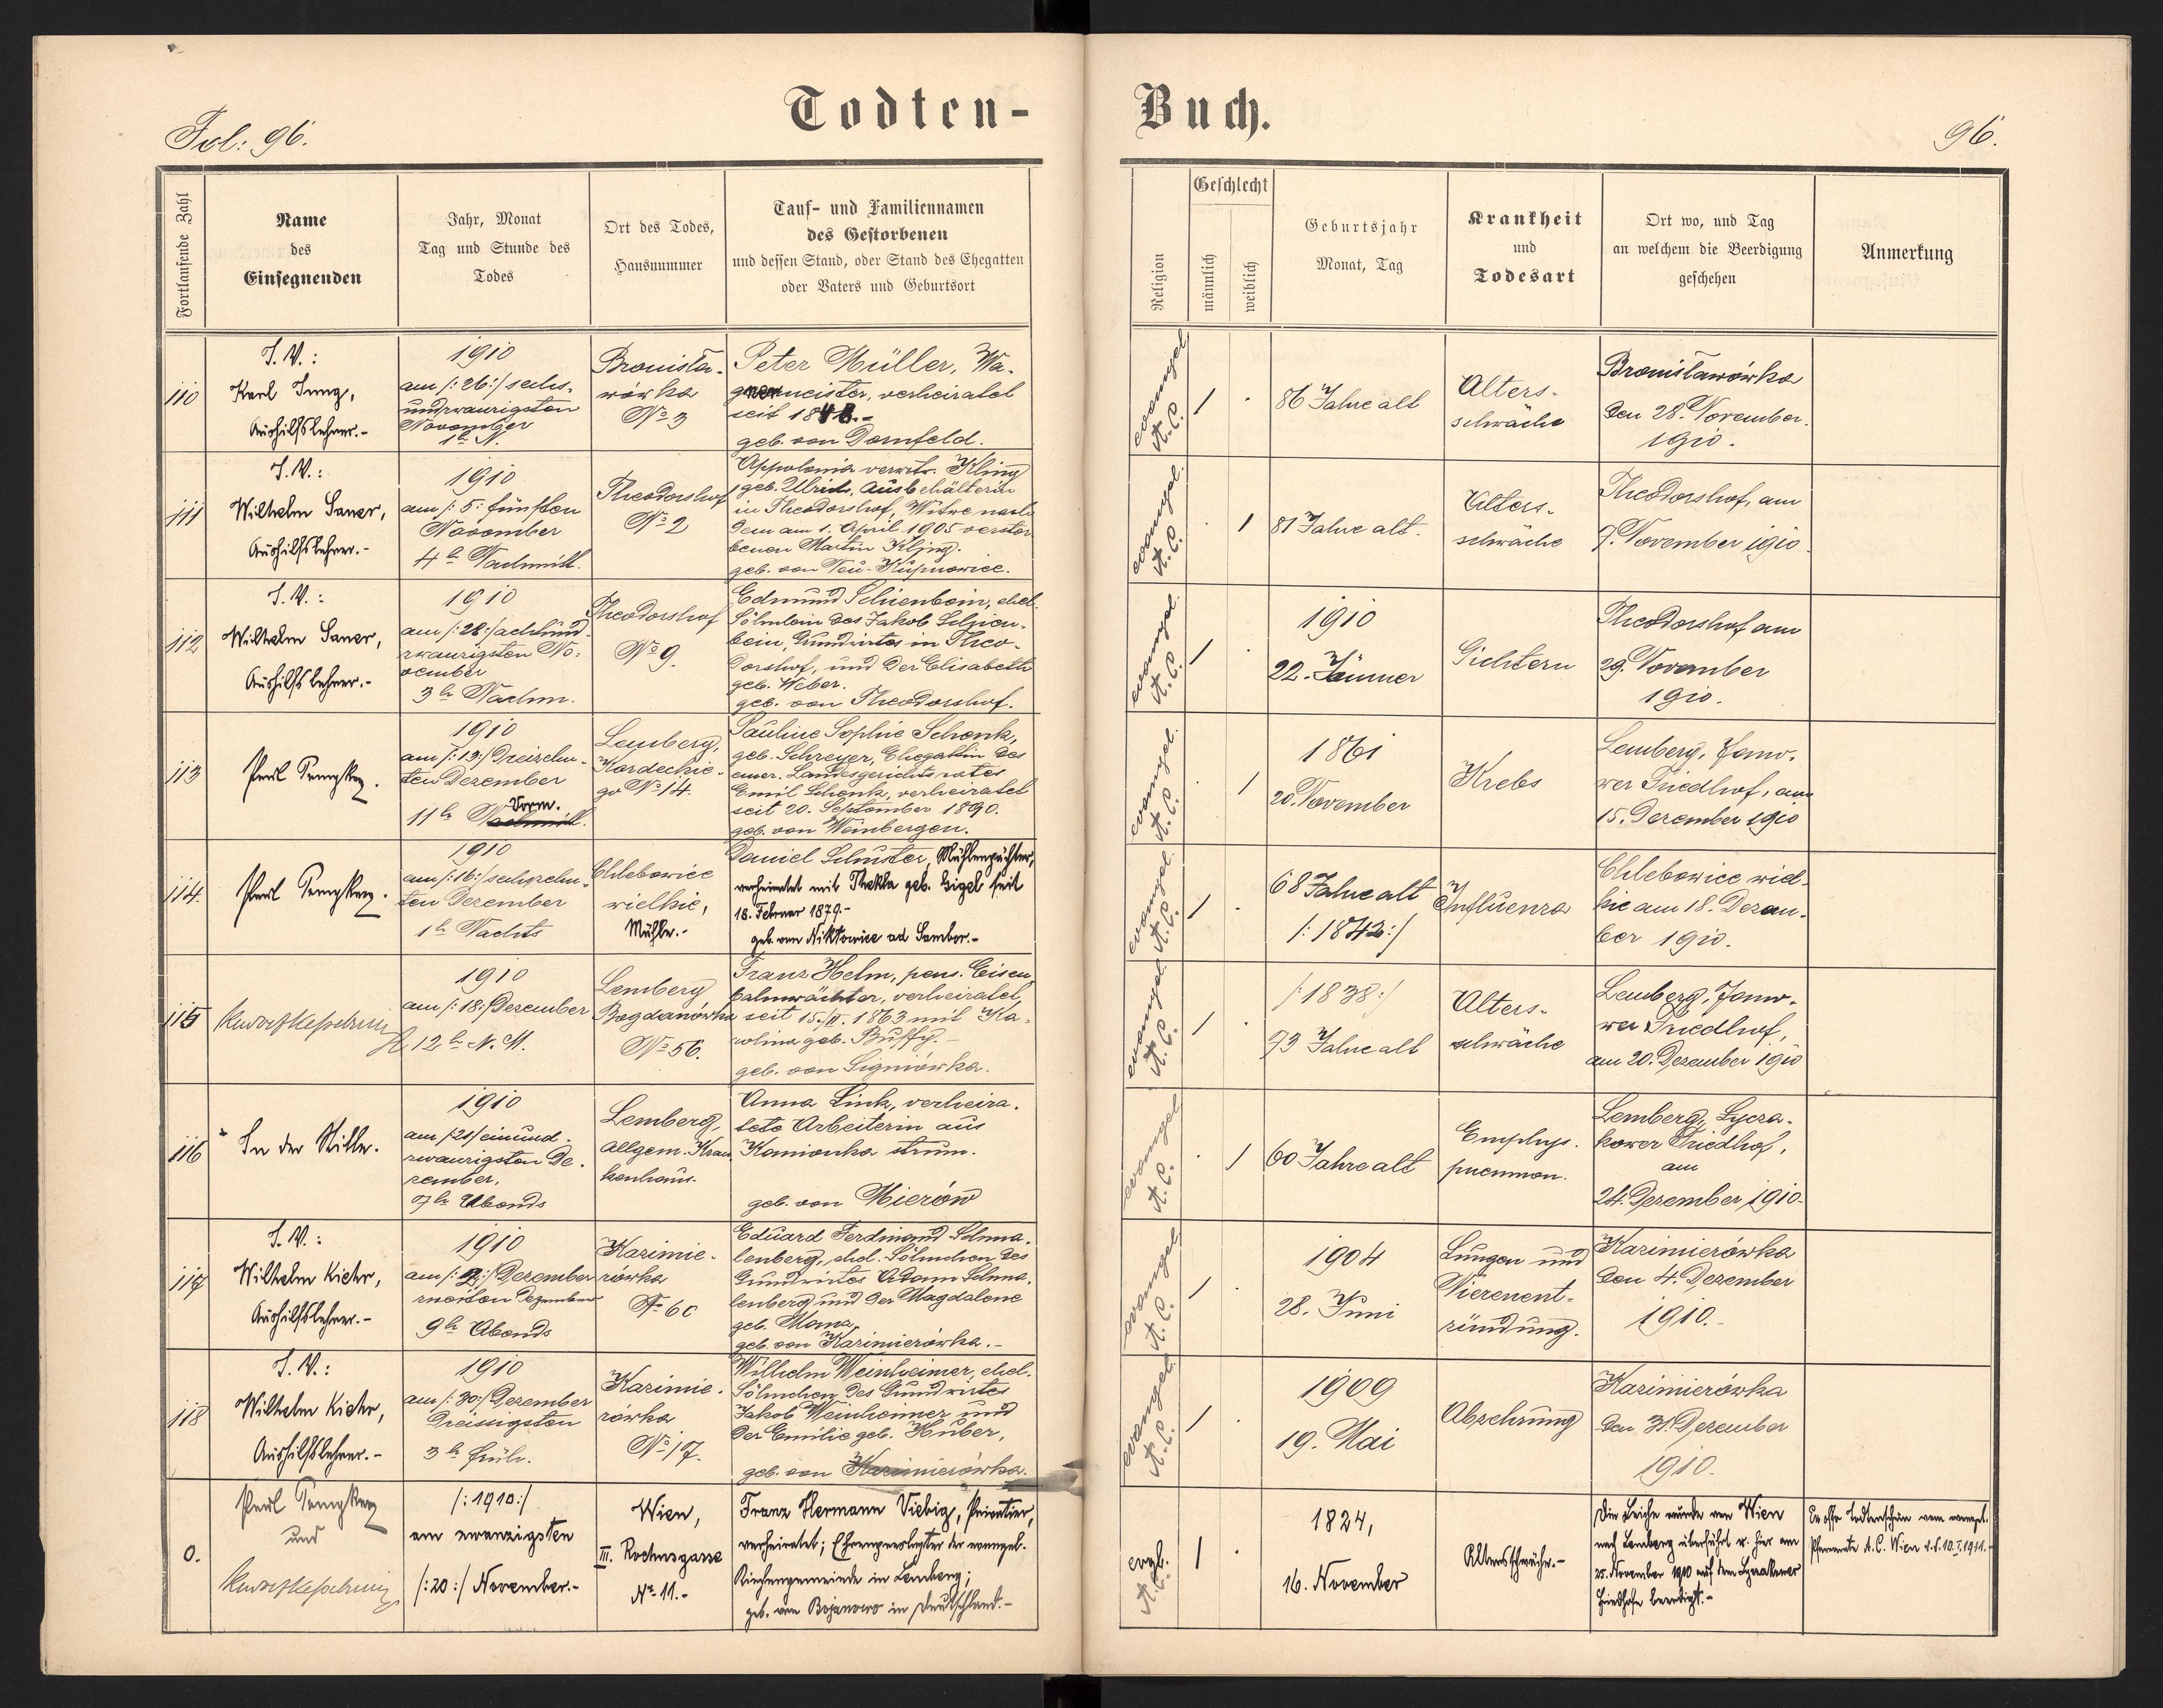 Todten-Buch.
Fol: 96.
96.
Fortlaufende Zahl
Name
des
Einsegnenden
Jahr, Monat
Tag und Stunde des
Todes
Ort des Todes,
Hausnummer
Tauf- und Familiennamen
des Gestorbenen
und dessen Stand, oder Stand des Ehegatten
oder Vaters und Geburtsort
Religion
Geschlecht
männlich
weiblich
Geburtsjahr
Monat, Tag
Krankheit
und
Todesart
Ort wo, und Tag
an welchem die Beerdigung
geschehen
Anmerkung
110
I. V.:
Karl Jung,
Aushilfslehrer.-
1910
am /:26:/ sechs-
undzwanzigsten
November
1h N.
Bronisła-
wówka
No 3
Peter Müller, Wa-
gnermeister, verheiratet
seit 1848.-
geb. von Dornfeld.
evangel.
A. C.
1 .
86 Jahre alt
Alters-
schwäche
Bronisławówka
den 28. November
1910.
111
I. V.:
Wilhelm Sauer,
Aushilfslehrer.-
1910
am /:5:/ fünften
November
4h Nachmitt.
Theodorshof
No 2
Appolonia verwitw. Kling
geb. Ulrich, Ausbehälterin
in Theodorshof, Witwe nach
dem am 1. April 1905 verstor
benen Martin Kling.
geb. von Neu-Kupnowice.
evangel.
A. C.
. 1
81 Jahre alt.
Alters-
schwäche
Theodorshof, am
7. November 1910.
112
I. V.:
Wilhelm Sauer,
Aushilfslehrer.-
1910
am /:28:/ achtund-
zwanzigsten No-
vember
3h Nachm.
Theodorshof
No 9.
Edmund Schienbein, ehel.
Söhnlein des Jakob Schien-
bein, Grundwirtes in Theo-
dorshof, und der Elisabeth
geb. Weber.
geb. von Theodorshof.
evangel.
A. C.
1 .
1910
22. Jänner
Gichtern
Theodorshof am
29. November
1910.
113
1910
am /:13:/ Dreizehn-
ten Dezember
11h Vorm.
Lemberg,
Kordeckie-
go No 14.
Pauline Sophie Schenk,
geb. Schreyer, Ehegattin des
emer. Landesgerichtsrates
Emil Schenk, verheiratet
seit 20. September 1890.
geb. von Weinbergen.
evangel.
A. C.
. 1
1861
20. November
Krebs
Lemberg, Janow-
er Friedhof, am
15. Dezember 1910
114.
1910
am /:16:/ sechzehn-
ten Dezember
1h Nachts
Chlebowice
wielkie,
Mühle.-
Daniel Schuster, Mühlenpächter,
verheiratet mit Thekla geb. Gigel seit
18. Februar 1879.-
geb. von Niktowice ad Sambor.-
evangel.
A. C.
1 .
68 Jahre alt
/:1842:/
Influenza
Chlebowice wiel-
kie am 18. Dezem-
ber 1910.
115
1910
am /:18:/ Dezember
12h N. M.
Lemberg
Bogdanówka
No 56.
Franz Helm, pens. Eisen
bahnwächter, verheiratet,
seit 15./II. 1863 mit Ka-
rolina geb. Buffy.-
geb. von Sigmiówka.
evangel.
A. C.
1 .
/:1838:/
73 Jahre alt
Alters-
schwäche
Lemberg, Janow-
er Friedhof,
am 20. Dezember 1910
116
In der Stille.
1910
am /:21:/ einund-
zwanzigsten De-
zember,
7h Abends
Lemberg,
Allgem. Kran-
kenhaus.
Anna Link, verheira-
tete Arbeiterin aus
Kamionka strum.
geb. von Mierów
evangel.
A. C.
. 1
60 Jahre alt
Emphys.
pneumon.
Lemberg, Lycza-
kower Friedhof,
am
24. Dezember 1910.
117
I. V.:
Wilhelm Kiehr,
Aushilfslehrer.-
1910
am /:2:/ Dezember
zweiten Dezember
9h Abends
Kazimie-
rówka
No 60
Eduard Ferdinand Schma-
lenberg, ehel. Söhnchen des
Grundwirtes Adam Schma-
lenberg und der Magdalene
geb. Manz,
geb. von Kazimierówka.-
evangel.
A. C.
1 .
1904
28. Juni
Lungen und
Nierenent-
zündung.
Kazimierówka
den 4. Dezember
1910.-
118
I. V.:
Wilhelm Kiehr,
Aushilfslehrer.-
1910
am /:30:/ Dezember
Dreissigsten
3h früh.
Kazimie-
rówka
No 17.
Wilhelm Weinheimer, ehel.
Söhnchen des Grundwirtes
Jakob Weinheimer und
der Emilie geb. Huber,
geb. von Kazimierówka.
evangel.
A. C.
1 .
1909
19. Mai
Abzehrung
Kazimierówka
den 31. Dezember
1910.
0.
und
/:1910:/
am zwanzigsten
/:20:/ November.-
Wien,
III. Rochusgasse
No 11.-
Franz Hermann Viebig, Privatier,
verheiratet; Ehrenpresbyter der evangel.
Kirchengemeinde in Lemberg;
geb. von Bojanowo in Deutschland.-
evgl.
A. C.
1 .
1824,
16. November
Altersschwäche.-
Die Leiche wurde von Wien
nach Lemberg überführt u. hier am
25. November 1910 auf dem Lyczakower
Friedhofe beerdigt.-
Todtenschein vom evangel.
Pfarramte A. C. Wien d. d. 10./I. 1911.-